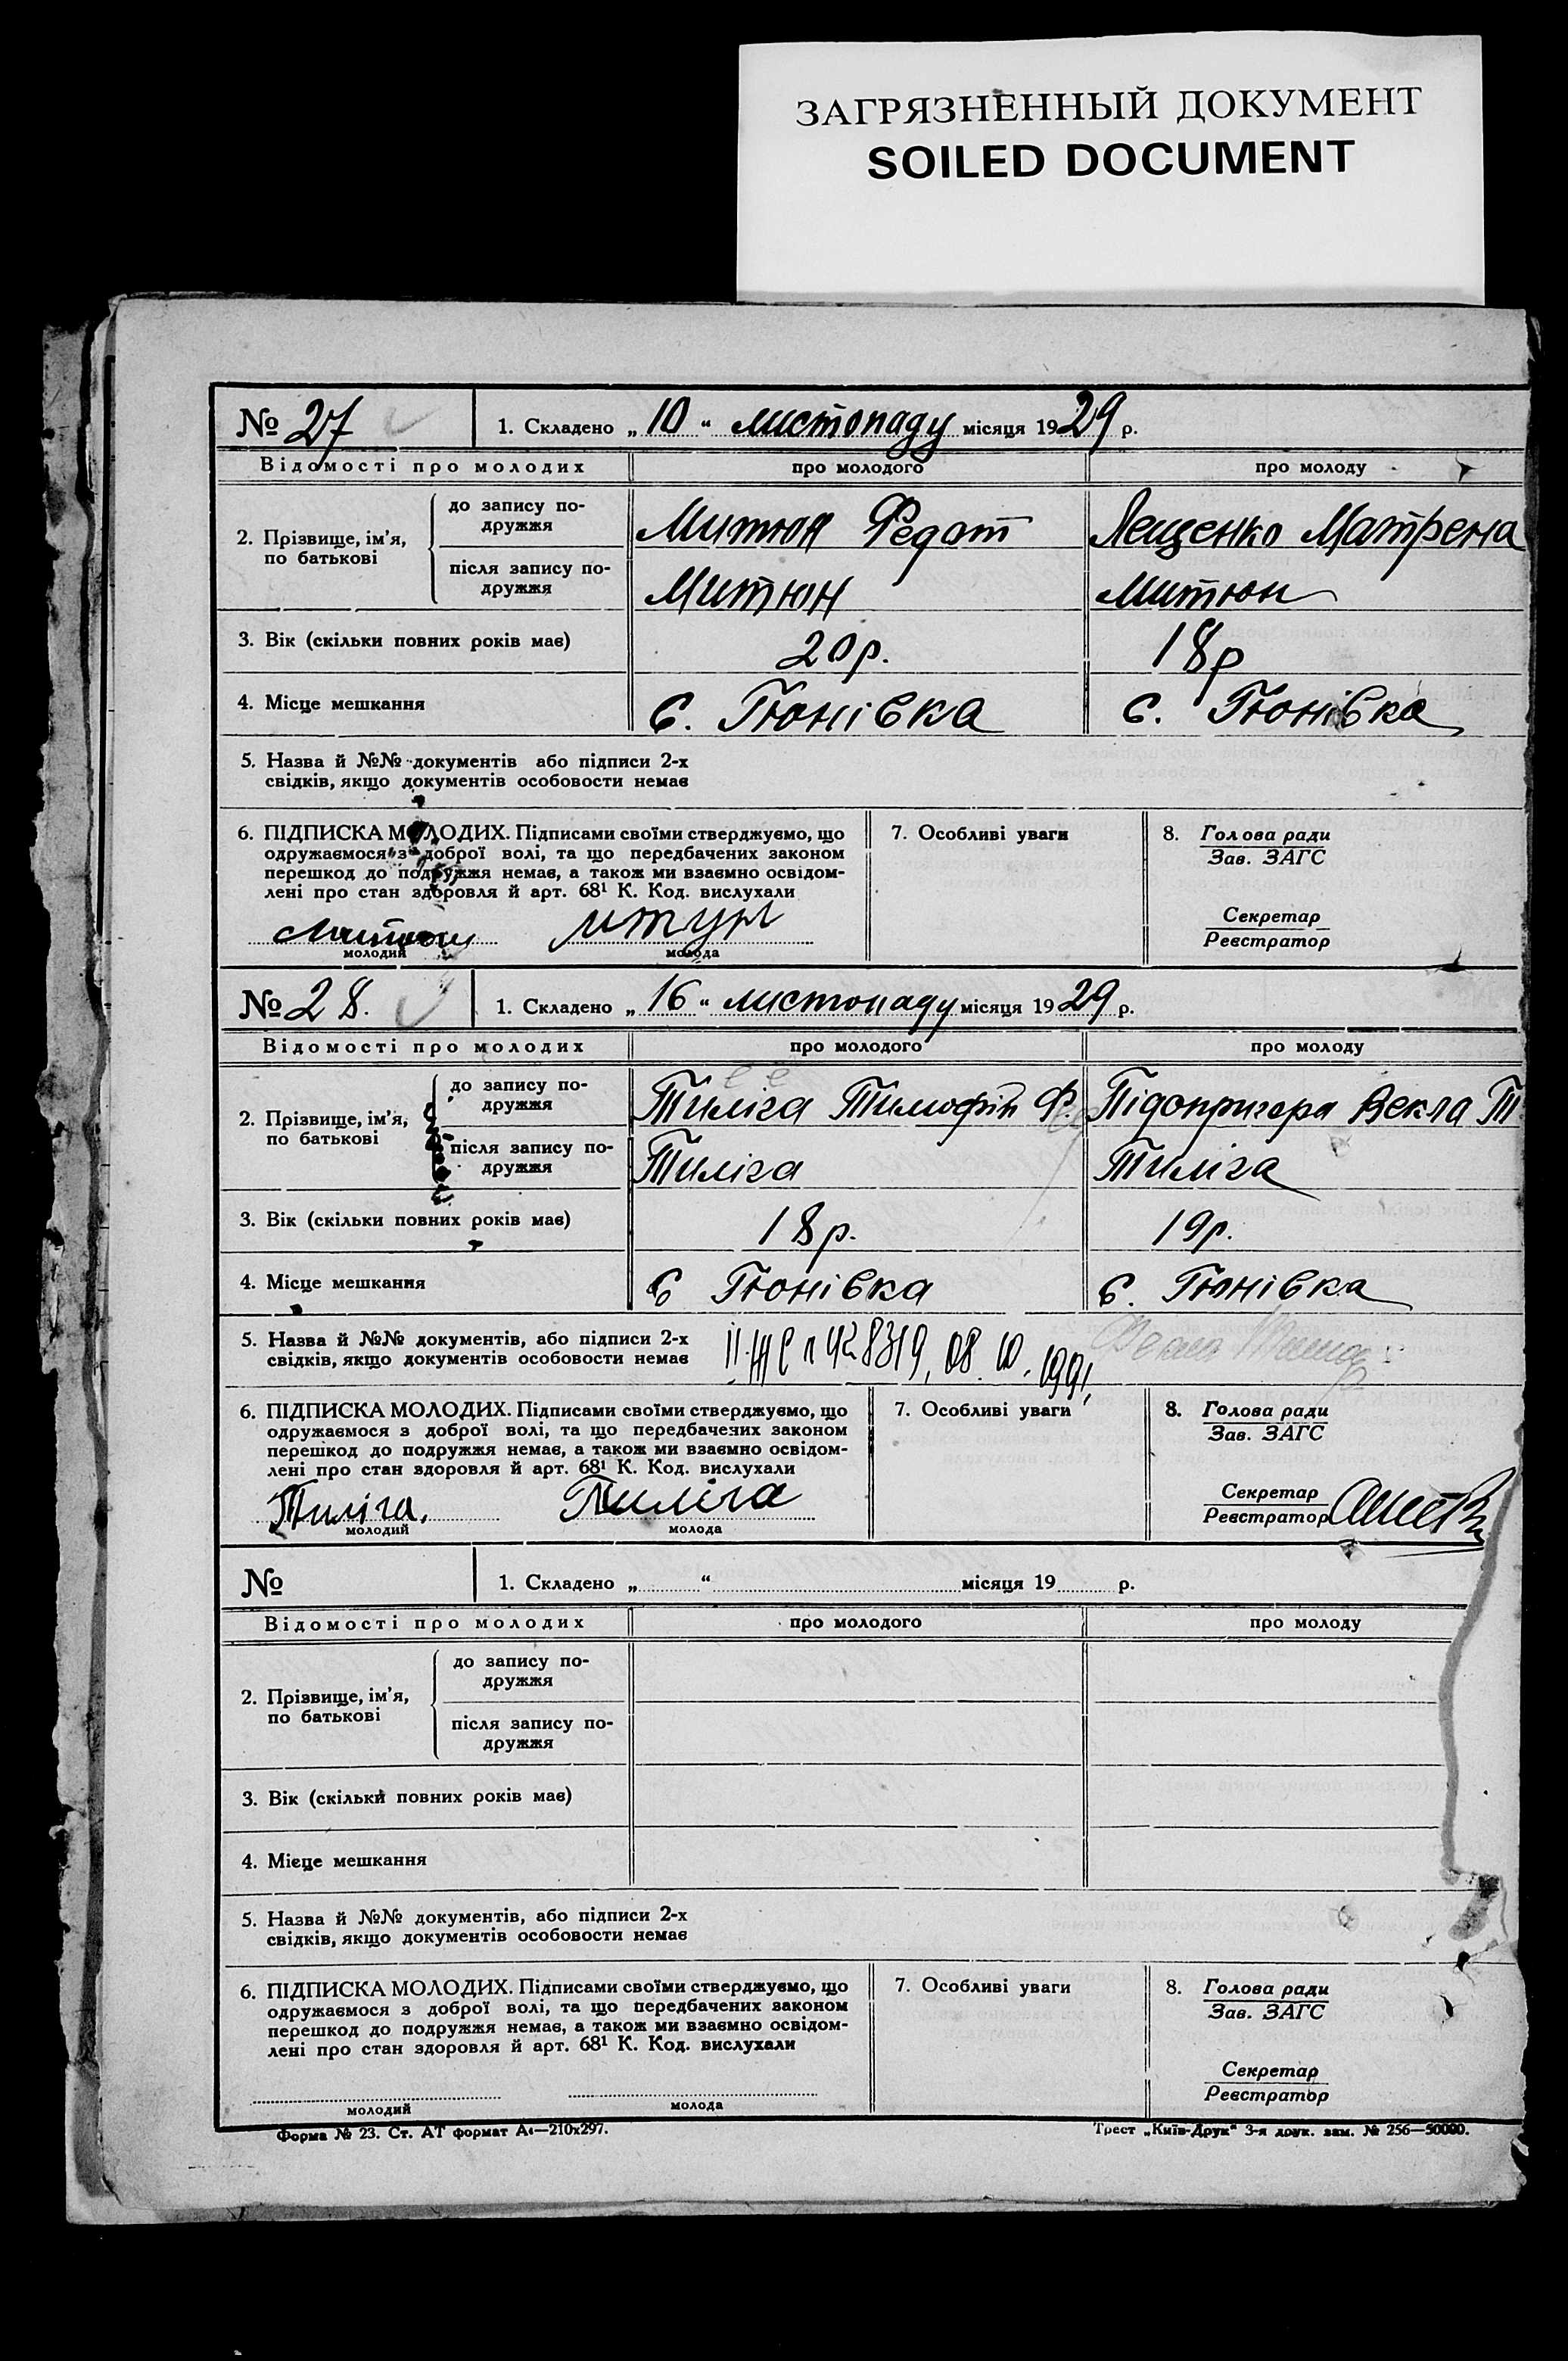 ЗАГРЯЗНЕННЫЙ ДОКУМЕНТ
SOILED DOCUMENT
№ 27
1. Складено „ 10 “ листопаду місяця 1929 р.
Відомості про молодих
про молодого
про молоду
2. Прізвище, ім’я,
по батькові
до запису по-
дружжя
Митюн Федот
Лещенко Матрена
після запису по-
дружжя
Митюн
Митюн
3. Вік (скільки повних років має)
20р.
18р
4. Місце мешкання
с. Гюнівка
с. Гюнівка
5. Назва й №№ документів або підписи 2-х
свідків, якщо документів особовости немає
6. ПІДПИСКА МОЛОДИХ. Підписами своїми стверджуємо, що
одружаємося з доброї волі, та що передбачених законом
перешкод до подружжя немає, а також ми взаємно освідом-
лені про стан здоровля й арт. 68¹ К. Код. вислухали
молодий
молода
7. Особливі уваги
8. Голова ради
Зав. ЗАГС
Секретар
Реєстратор
№ 28.
1. Складено „ 16 “ листопаду місяця 1929 р.
Відомості про молодих
про молодого
про молоду
2. Прізвище, ім’я,
по батькові
до запису по-
дружжя
Тиліга Тимофій Ф.
Підопригора Векла Т
після запису по-
дружжя
Тиліга
Тиліга
3. Вік (скільки повних років має)
18р.
19р.
4. Місце мешкання
с Гюнівка
с. Гюнівка
5. Назва й №№ документів, або підписи 2-х
свідків, якщо документів особовости немає
08.10.1991,
6. ПІДПИСКА МОЛОДИХ. Підписами своїми стверджуємо, що
одружаємося з доброї волі, та що передбачених законом
перешкод до подружжя немає, а також ми взаємно освідом-
лені про стан здоровля й арт. 68¹ К. Код. вислухали
Тиліга.
Тиліга
молодий
молода
7. Особливі уваги
8. Голова ради
Зав. ЗАГС
Секретар
Реєстратор
№
1. Складено „ “ місяця 19 р.
Відомості про молодих
про молодого
про молоду
2. Прізвище, ім’я,
по батькові
до запису по-
дружжя
після запису по-
дружжя
3. Вік (скільки повних років має)
4. Місце мешкання
5. Назва й №№ документів, або підписи 2-х
свідків, якщо документів особовости немає
6. ПІДПИСКА МОЛОДИХ. Підписами своїми стверджуємо, що
одружаємося з доброї волі, та що передбачених законом
перешкод до подружжя немає, а також ми взаємно освідом-
лені про стан здоровля й арт. 68¹ К. Код. вислухали
молодий
молода
7. Особливі уваги
8. Голова ради
Зав. ЗАГС
Секретар
Реєстратор
Форма № 23. Ст. АТ формат А₄—210х297.
Трест „Київ-Друк“ 3-я друк. зам. № 256—50000.